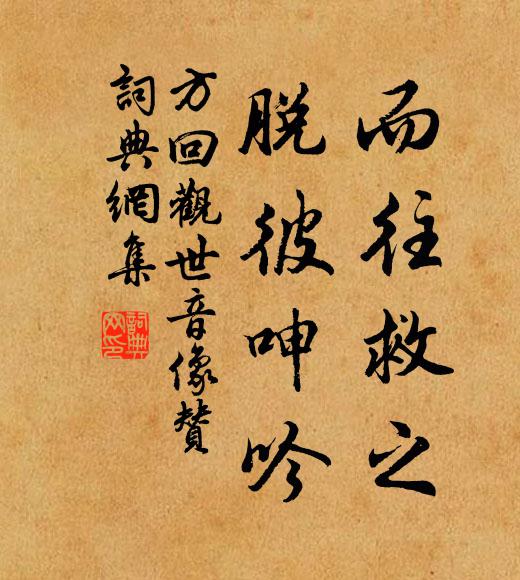 而往救之
脫彼呻吟
方回觀世音像贊
詞典網集
詞典网印